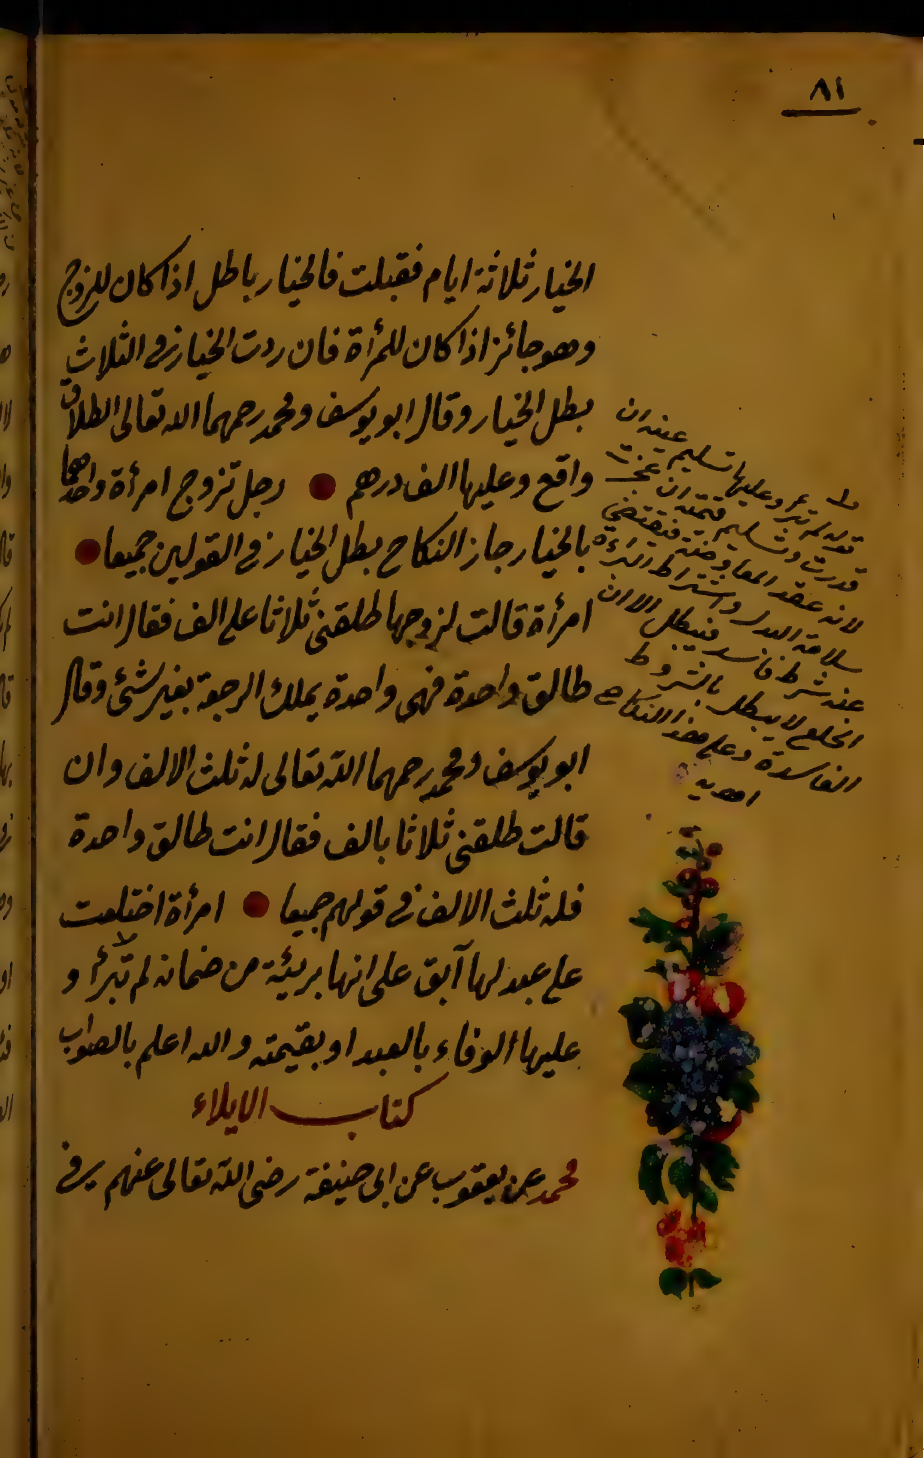 ٨١
الخيار ثلاثة ايام فقبلت فالخيار باطل اذا كان للزوج
وهو جائز اذا كان للمرأة فان ردت الخيار في الثلاث
بطل الخيار وقال ابو يوسف ومحمد رحمهما الله تعالى الطلاق
واقع وعليها الف درهم رجل تزوج امرأة واحدهما
بالخيار جاز النكاح بطل الخيار في القولين جميعا
امرأة قالت لزوجها طلقني ثلاثا على الف فقال انت
طالق واحدة فهى واحدة يملك الرجعة بغير شئ وقال
ابو يوسف ومحمد رحمهما الله تعالى له ثلث الالف وان
قالت طلقني ثلاثا بالف فقال انت طالق واحدة
فله ثلث الالف في قولهم جميعا امرأة اختلعت
على عبد لها آبق على انها بريئة من ضمانه لم تبرأ و
عليها الوفاء بالعبد او بقيمته والله اعلم بالصواب
كتاب الايلاء
محمد عن يعقوب عن ابى حنيفة رضى الله تعالى عنهم في
قوله لم تبرأ وعليها تسليم عينه ان
قدرت وتسليم قيمته ان عجزت
لانه عقد المعاوضة فيقتضى
سلامة البدل واشتراط البراءة
عنه شرط فاسد فيبطل الا ان
الخلع لا يبطل بالشروط
الفاسدة وعلى هذا النكاح